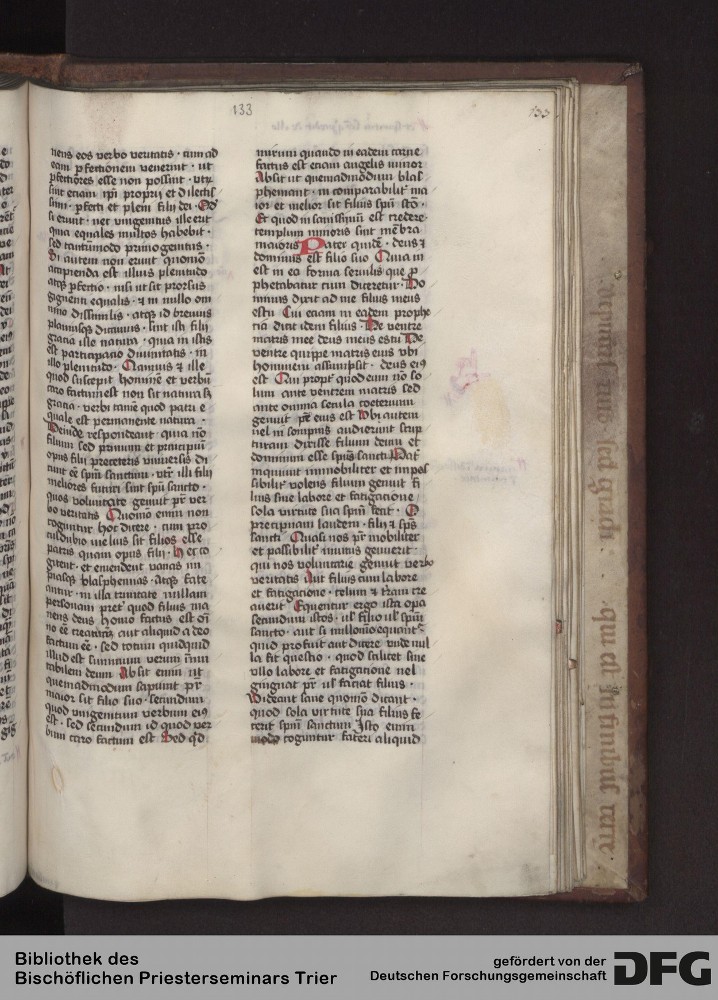 133
133
nens eos verbo veritatis · cum ad
eam pfectionem venerint · ut
pfectiores esse non possint · vtrū
sint etiam ip̄i proprii et dilectis
simi · pfecti et pleni filii dei · Qđ
si erunt · nec vnigenitus ille erit
quia equales multos habebit ·
sed tantūmodo primogenitus ·
Si autem non erunt quomō
accipienda est illius plenitudo
atqꝫ pfectio · nisi ut sit prorsus
gignenti equalis · ⁊ in nullo om
nino dissimilis · atqꝫ id breuius
planiusqꝫ dicamus · sint isti filii
gracia ille natura · quia in istis
est participacio diuinitatis · in
illo plenitudo · Quamuis ⁊ ille
quod suscepit hominē et verbū
caro factum est non sit natura sꝫ
gracia · verbi tamē quod patri e
quale est permanente natura ·
Deinde respondeant quia nō
filium sed primum et precipuū
opus filii preceteris vniuersis di
cunt eē sp̄m sanctum · vtrū illi filii
meliores futuri sint sp̄u sancto ·
quos voluntate genuit pr̄ ver
bo veritatis Quomō enim non
coguntur hoc dicere · cum pro
culdubio melius sit filios esse
patris quam opus filii · hec co
gitent · et emendent vanas im
piasqꝫ blasphemias · atqꝫ fate
antur · in illa trinitate nullam
personam preter quod filius ma
nens deus homo factus est oī
no eē creaturā aut aliquid a deo
factum eē · sed totum quidquid
illud est summum verum īmu
tabilem deum Absit enim ut
quemadmodum sapiunt pr̄
maior sit filio suo · secundum
quod vnigenitum verbum eiꝯ
est · sed secundum id quod ver
bum caro factum est Sed qđ
mirum quando in eadem carne
factus est etiam angelis minor
Absit ut quemadmodum blas
phemant · in comparabilit' ma
ior et melior sit filius sp̄u stō ·
Et quod insanissimū est credere ·
templum minoris sint mēbra
maioris Pater quidē · deus ⁊
dominus est filio suo Quia in
est in ea forma seruilis que p̱
phetabatur cum diceretur · Do
minus dixit ad me filius meus
es tu Cui etiam in eadem prophe
tia dicit idem filius · De ventre
matris mee deus meus es tu De
ventre quippe matris eius vbi
hominem assumpsit · deus eiꝯ
est Nam propt' quod eum nō so
lum ante ventrem matris sed
ante omnia secula coeternum
genuit pr̄ eius est Vbi autem
vel in sompnis audierunt scrip
turam dixisse filium deum et
dominum esse spiritꝯ sancti Pat'
inquiunt immobiliter et inpas
sibilit' volens filium genuit fi
lius sine labore et fatigacione
sola virtute sua sp̄m fecit · O
precipuam laudem · filii ⁊ sp̄s
sancti Quasi nos pr̄ mobiliter
et passibilit' inuitus genuerit ·
qui nos voluntarie genuit verbo
veritatis Aut filius cum labore
et fatigacione · celum ⁊ t̄ram cre
auerit Equentur ergo ista opa
secundum istos · ul' filio ul' sp̄ui
sancto · aut si nullomō equant'
quid profuit aut dicere vnde nul
la fit questio · quod scilicet sine
vllo labore et fatigacione uel
gingnat pr̄ ul' faciat filius ·
Videant sane quomō dicant ·
quod sola virtute sua filius fe
cerit sp̄m sanctum Isto enim
modo coguntur fateri aliquid
sed
Bibliothek des
Bischöflichen Priesterseminars Trier
gefördert von der
Deutschen Forschungsgemeinschaft
DFG